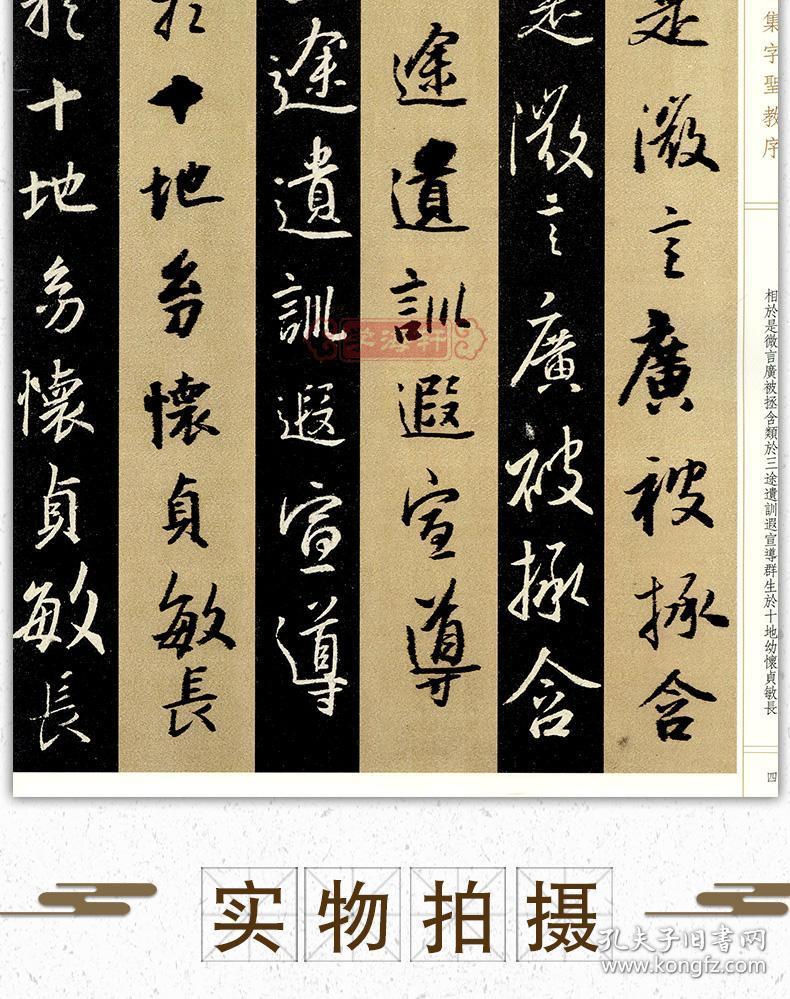 集字聖教序
相於是微言廣被拯含類於三途遺訓遐宣導群生於十地幼懷貞敏長
四
是微言廣被拯含
是微言廣被拯含
途遺訓遐宣導
途遺訓遐宣導
於十地幼懷貞敏長
於十地幼懷貞敏長
实物拍摄
孔夫子旧书网
www.kongfz.com